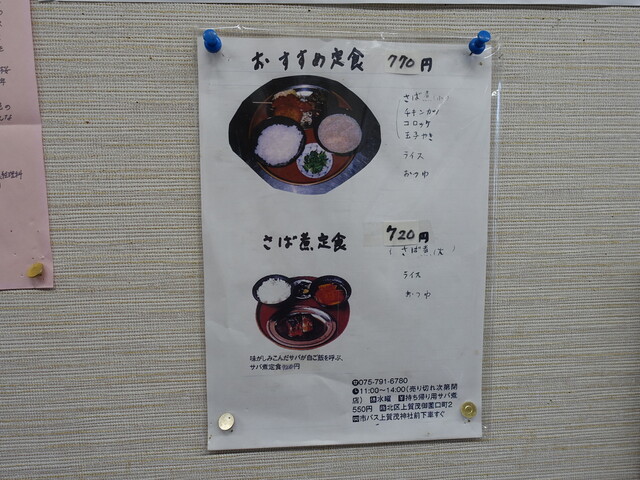 おすすめ定食 770円
さば煮(小)
チキンカツ
コロッケ
玉子やき
ライス
おつゆ
さば煮定食 720円
(さば煮(大))
ライス
おつゆ
味がしみこんだサバが白ご飯を呼ぶ、
サバ煮定食円
☎075-791-6780
11:00〜14:00(売り切れ次第閉
店) 休水曜 ¥持ち帰り用サバ煮
550円 北区上賀茂御薗口町2
市バス上賀茂神社前下車すぐ